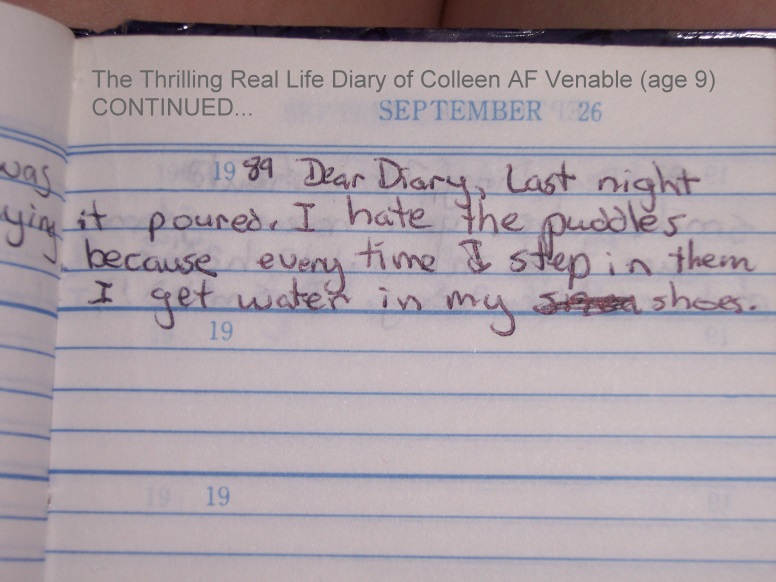 The Thrilling Real Life Diary of Colleen AF Venable (age 9)
CONTINUED...
SEPTEMBER 26
was
ying
19 89 Dear Diary, Last night
it poured. I hate the puddles
because every time I step in them
I get water in my shoes.
19
19